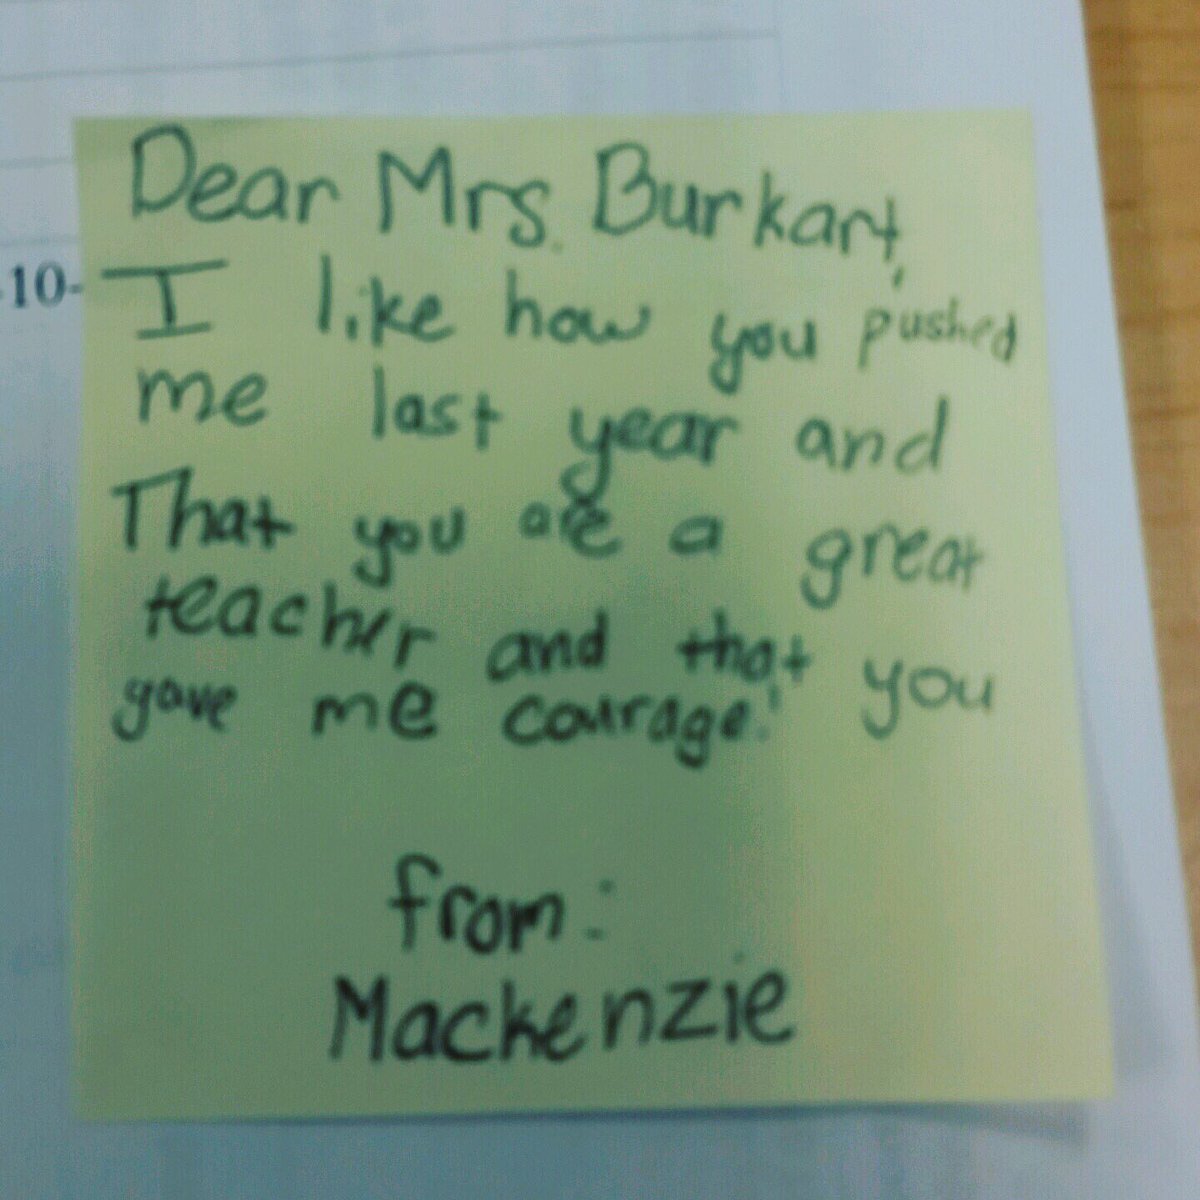 Dear Mrs. Burkart,
-10-
I like how you pushed
me last year and
That you are a great
teacher and that you
gave me courage!
from:
Mackenzie